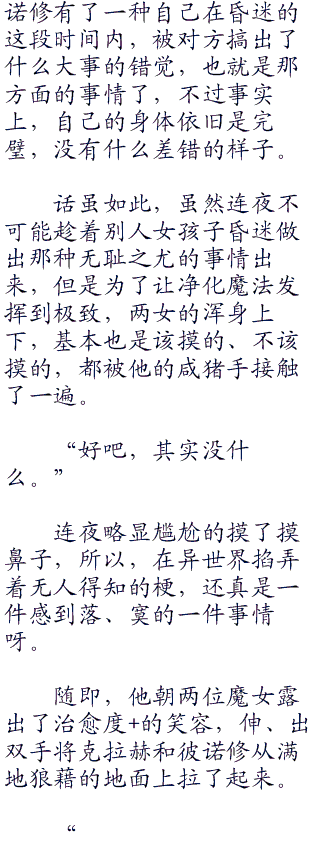 诺修有了一种自己在昏迷的
这段时间内，被对方搞出了
什么大事的错觉，也就是那
方面的事情了，不过事实
上，自己的身体依旧是完
璧，没有什么差错的样子。
话虽如此，虽然连夜不
可能趁着别人女孩子昏迷做
出那种无耻之尤的事情出
来，但是为了让净化魔法发
挥到极致，两女的浑身上
下，基本也是该摸的、不该
摸的，都被他的咸猪手接触
了一遍。
“好吧，其实没什
么。”
连夜略显尴尬的摸了摸
鼻子，所以，在异世界掐弄
着无人得知的梗，还真是一
件感到落、寞的一件事情
呀。
随即，他朝两位魔女露
出了治愈度+的笑容，伸、出
双手将克拉赫和彼诺修从满
地狼藉的地面上拉了起来。
“